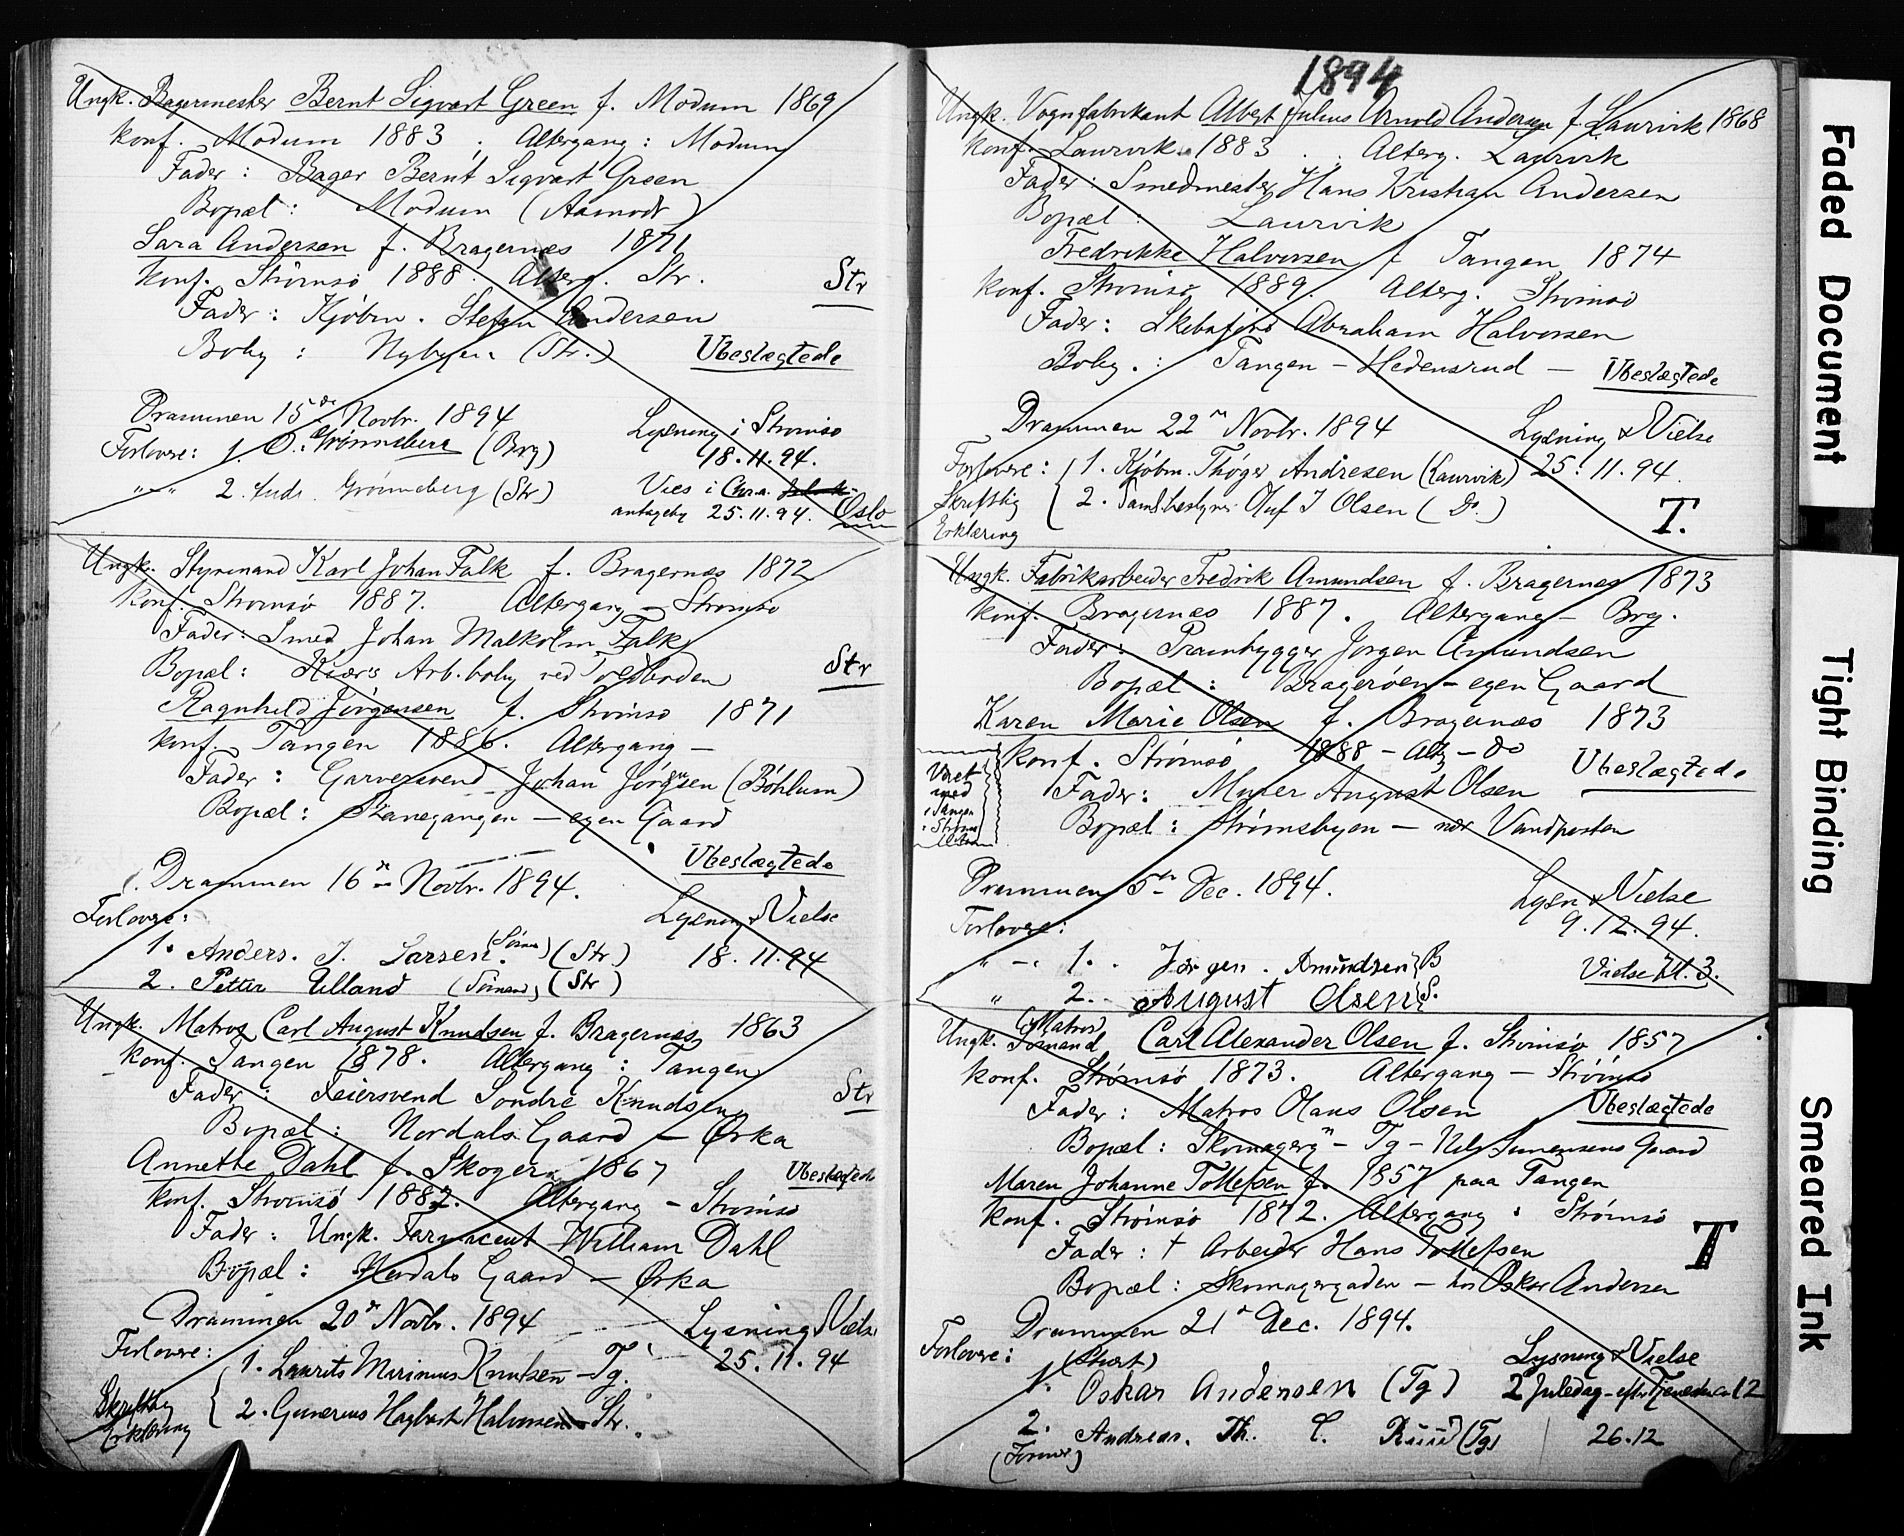 Ungk. Bagermester Bernt Sigvart Green f. Modum 1869
Konf. Modum 1883. Altergang: Modum
Fader: Bager Bernt Sigvart Green
Bopæl: Modum (Aamodt)
Sara Andersen f. Bragernæs 1871
Konf. Strømsø 1888. Alterg. Str.
Str
Fader: Kjøbm. Stefan Andersen
Boby: Nybyen (Str.)
Ubeslægtede
Drammen 15de Novbr. 1894
Lysning i Strømsø
18.11.94.
Forlovere: 1. O. Grønneberg (Brg)
2. Grønneberg (Str)
Vies i Chr.a.
antagelig 25.11.94. Oslo
Ungk. Styrmand Karl Johan Falk f. Bragernæs 1872
Konf. Strømsø 1887. Altergang – Strømsø
Fader: Smed Johan Malkolm Falk
Bopæl: Kiærs Arb.boby ved Toldboden
Str
Ragnhild Jörgensen f. Strömsö 1871
Konf. Tangen 1886. Altergang –
Fader: Garversvend Johan Jörgsen (Böhlum)
Bopæl: – egen Gaard
Ubeslægtede
Drammen 16n Novbr. 1894.
Forlovere:
Lysning & Vielse
1. Anders. J. Larsen. (Str.)
18.11.94
2. Petter Ulland (Str)
Ungk. Matros Carl August Knudsen f. Bragernæs 1863
Konf. Tangen 1878. Altergang: Tangen
Fader: Feiersvend Sondre Knudsen
Str
Bopæl: Nordals Gaard – Ørka
Annette Dahl f. Skoger 1867
Ubeslægtede
Konf. Strømsø 1882. Altergang – Strømsø
Fader: Ungk. Farmaceut William Dahl
Bopæl: Nordals Gaard – Ørka
Drammen 20n Novbr. 1894
Lysning & Vielse
25.11.94
Forlovere:
Skriftlig Erklæring
1. Laurits Marinius Knutsen – Tg.
2. Gunerius Hagbart Halvorsen – Str.
1894
Ungk. Vognfabrikant Albert Julius Arnold Andersen f. Laurvik 1868
Konf. Laurvik 1883. Alterg. Laurvik
Fader: Smedmester Hans Kristian Andersen
Bopæl: Laurvik
Fredrikke Halvorsen f. Tangen 1874
Konf. Strømsø 1889. Alterg. Strømsø
Fader: Abraham Halvorsen
Boby.: Tangen – Hedensrud –
Ubeslægtede
Drammen 22n Novbr. 1894
Lysning & Vielse
25.11.94.
Forlovere: 1. Kjøbm. Thøger Andresen (Laurvik)
Skriftlig Erklæring
2. Oluf J Olsen (Do.)
T.
Ungk. Fabrikarbeider Fredrik Amundsen f. Bragernæs 1873
Konf. Bragernæs 1887. Altergang – Brg.
Fader: Prambygger Jørgen Amundsen
Bopæl: Bragerøen – egen Gaard
Karen Marie Olsen f. Bragernæs 1873
Konf. Strømsø 1888 – Altg – Do
Ubeslægtede
Været med
Fader: Murer August Olsen
Bopæl: Strømsbyen – nær Vandposten
Drammen 5te Dec. 1894.
Lysn & Vielse
9.12.94.
Forlovere:
1. Jørgen. Amundsen B
2. August Olsen S.
Vielse Kl. 3.
Ungk. Matros Sømand Carl Alexander Olsen f. Strømsø 1857
Konf. Strømsø 1873. Altergang – Strømsø
Fader: Matros Olaus Olsen
Ubeslægtede
Bopæl: Skomagerg – Tg – Nils Simensens Gaard
Maren Johanne Tollefsen f. 1857 paa Tangen
Konf. Strømsø 1872. Altergang: Strømsø
T
Fader: † Arbeider Hans Tollefsen
Bopæl: Skomagergaden – hos Oskar Andersen
Drammen 21n Dec. 1894.
Forlovere:
Lysning & Vielse
1. Oskar Andersen (Tg)
2 Juledag – efter Tjenesten 12
2. Andreas. Th. C. Ruud (Tg)
26.12
Faded Document
Tight Binding
Smeared Ink